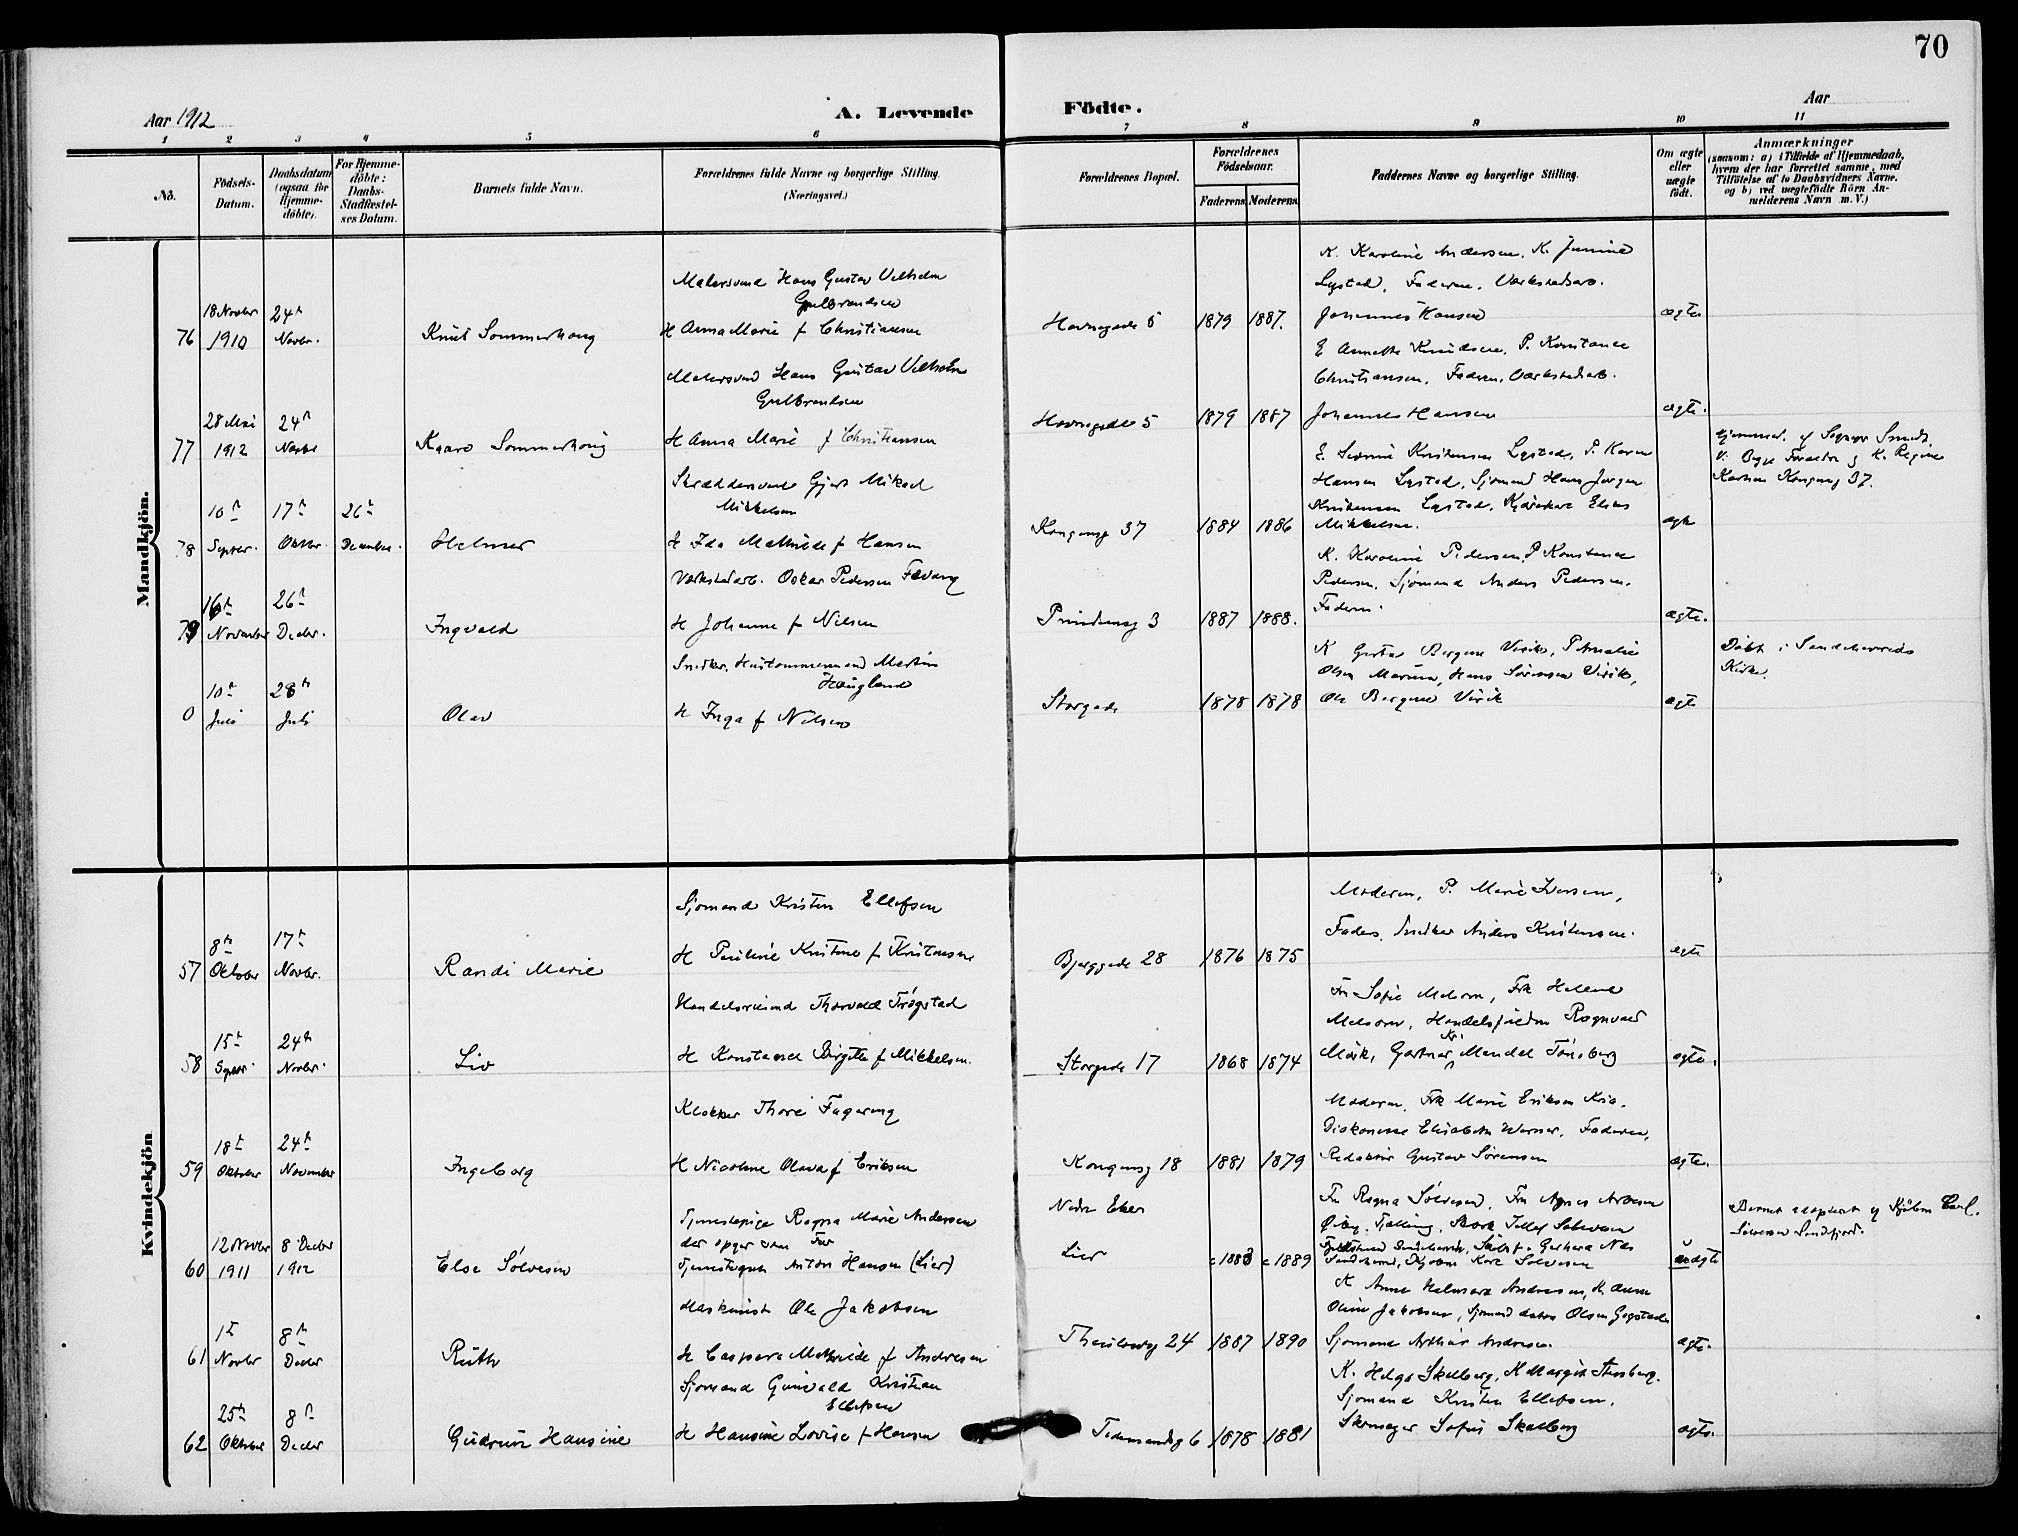 70
Aar 1912
A. Levende
Födte.
Aar
1 2 3 4 5 6 7 8 9 10 11
No.
Födsels-Datum.
Daabsdatum (ogsaa for Hjemme-döbte).
For Hjemme-döbte: Daabs-Stadfæstel-ses Datum.
Barnets fulde Navn.
Forældrenes fulde Navne og borgerlige Stilling.
(Næringsvei.)
Forældrenes Bopæl.
Forældrenes Födselsaar.
Faderens. Moderens.
Faddernes Navne og borgerlige Stilling.
Om ægte eller uægte födt.
Anmærkninger
(saasom: a) i Tilfælde af Hjemmedaab,
hvem der har forrettet samme, med
Tilföielse af to Daabsvidners Navne.
og b) ved uægtefödte Börn An-
melderens Navn m. V.)
Mandkjön.
76
18 Novbr 1910
24de Novbr.
Knut Sommerhaug
Malersvend Hans Gustav Vilhelm
Gulbrandsen
H Anna Marie f Christiansen
Havnegade 5
1879 1887.
K. Karoline Andersen, K.
Lystad, Faderen, Værkstedsarb.
Johannes Hansen
ægte
77
28 Mai 1912
24de Novbr
Kaare Sommerhaug
Malersvend Hans Gustav Vilhelm
Gulbrandsen
H Anna Marie f Christiansen
Havnegade 5
1879 1887
E Annette Knudsen, P. Konstance
Christiansen, Faderen, Værkstedsarb.
Johannes Hansen
ægte.
78
10de Septbr.
17de Oktbr.
26de Decembr.
Helmer
Skræddersvend Gjert Mikael
Mikkelsen
H Ida Mathilde f Hansen
Kongensg 37
1884 1886
E. Kristensen Lystad, P. Karen
Hansen Lystad, Sjømand Hans Jørgen
Kristensen Lystad, Elias
Mikkelsen.
ægte
Hjemmed. af Sogнepr
V: Begge Forældre og K. Regine
Karlsen Kongensg 37.
79
16de November
26de Decbr.
Ingvald
Værkstedarb. Oskar Pedersen Fevang
H Johanne f Nilsen
Prindsensg 3
1887 1888.
K. Karoline Pedersen, P Konstance
Pedersen, Sjømand Anders Pedersen.
Faderen.
ægte.
0
10de Juli
28de Juli
Olav
Snedker, Hustømmermand Martin
Haugland
H Inga f Nilsen
Storgade
1878 1878
K Bergene Virik, P Amalie
Olsen Marum, Hans Sörensen Virik,
Ole Bergene Virik
ægte
Döbt i Sandeherreds
Kirke.
Kvindekjön
57
8de Oktober
17de Novbr.
Randi Marie
Sjömand Kristen Ellefsen
H Pauline Kristine f Kristensen
Bjerggade 28
1876 1875
Moderen, P. Marie Iversen,
Fader, Snedker Anders Kristensen.
ægte
58
15de Septbr.
24de Novbr.
Liv
Handelsreisend Thorvald Trøgstad
H Konstance Birgitte f Mikkelsen.
Storgade 17
1868 1874
Fru Sofie Melsom, Frk Helene
Melsom, Ragnvald
Mörk, Gartner Kr. Mendel Tönsberg
ægte.
59
18de Oktober
24de November
Ingeborg
Klokker Thore Fagereng
H Nicoline Olava f Eriksen
Kongensg 18
1881 1879
Moderen, Frk Marie Eriksen Kria.
Diakonesse Elisabeth Werner, Faderen,
Redaktör Gustav Sörensen
ægte.
60
12 Novbr 1911
8 Decbr 1912
Else Sölvesen
Tjenestepige Ragna Marie Andersen
der opgiver som Far
Tjenestegut Anton Hansen (Lier)
Nedre Eker
Lier
c 1883 c 1889
Fru Ragna Sölvesen, Fru Agnes
Gerhard
Sandeherred, Sölvesen
uægte
Barnet adopteret af Carl
Sölvesen Sandefjord.
61
1te Novbr
8de Decbr
Ruth
Maskinist Ole Jakobsen
H Caspara Mathilde f Andresen
24
1887 1890
K Anne Helmara Andresen, K. Anne
Oline Jakobsen, Sjömand Olsen Gogstad
Sjömand Arthur Andresen.
ægte.
62
25de Oktober
8de Decbr
Gudrun Hansine
Sjömand Gunvald Kristian
Ellefsen
H Hansine Lovise f Hansen
Tidemandsg 6
1878 1881
K. Helga Skalberg, K Margit
Sjömand Kristen Ellefsen.
Skomager Sofus Skalberg
ægte.